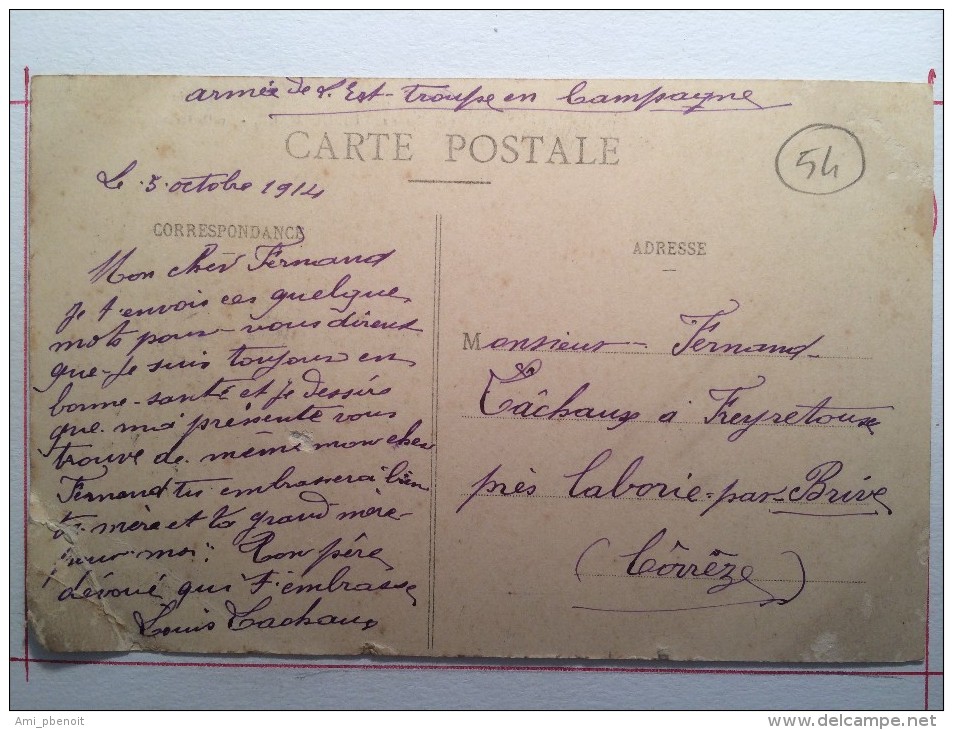 armée de l'Est - troupe en Campagne
CARTE POSTALE
54
Le 5 octobre 1914
CORRESPONDANCE
Mon cher Fernand
je t'envois ces quelque
mots pour vous dirent
que je suis toujours en
bonne santé et je dessire
que ma présente vous
trouve de même mon cher
Fernand tu embrassera bien
ta mère et ta grand mère
pour moi. Ton père
dévoué qui t'embrasse
Louis Tachaux
ADRESSE
Monsieur Fernand
Tâchaux à Freyretoux
près Laborie par Brive
(Corrèze)
Ami_pbenoit
www.delcampe.net